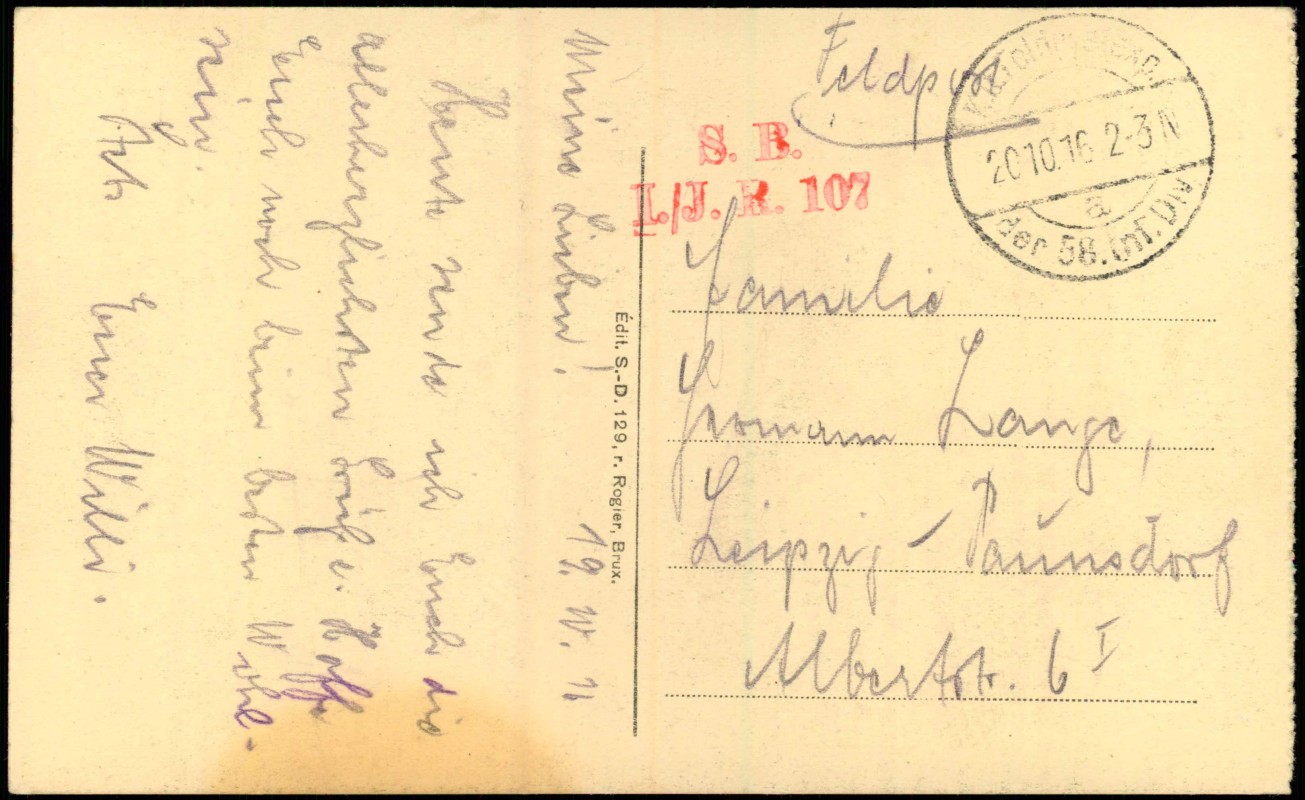 Feldpost
Feldpostexp.
20.10.16 2-3 N
a
der 58. Inf. Div.
S. B.
I./J. R. 107
Familie
Hermann Lange,
Leipzig - Paunsdorf
Albertstr. 6 I
Édit. S.-D. 129, r. Rogier, Brux.
Meine Lieben! 19.
Heute sende ich Euch die
allerherzlichsten Grüße. Hoffe
Euch noch beim besten Wohl-
sein.
Euer Willi.